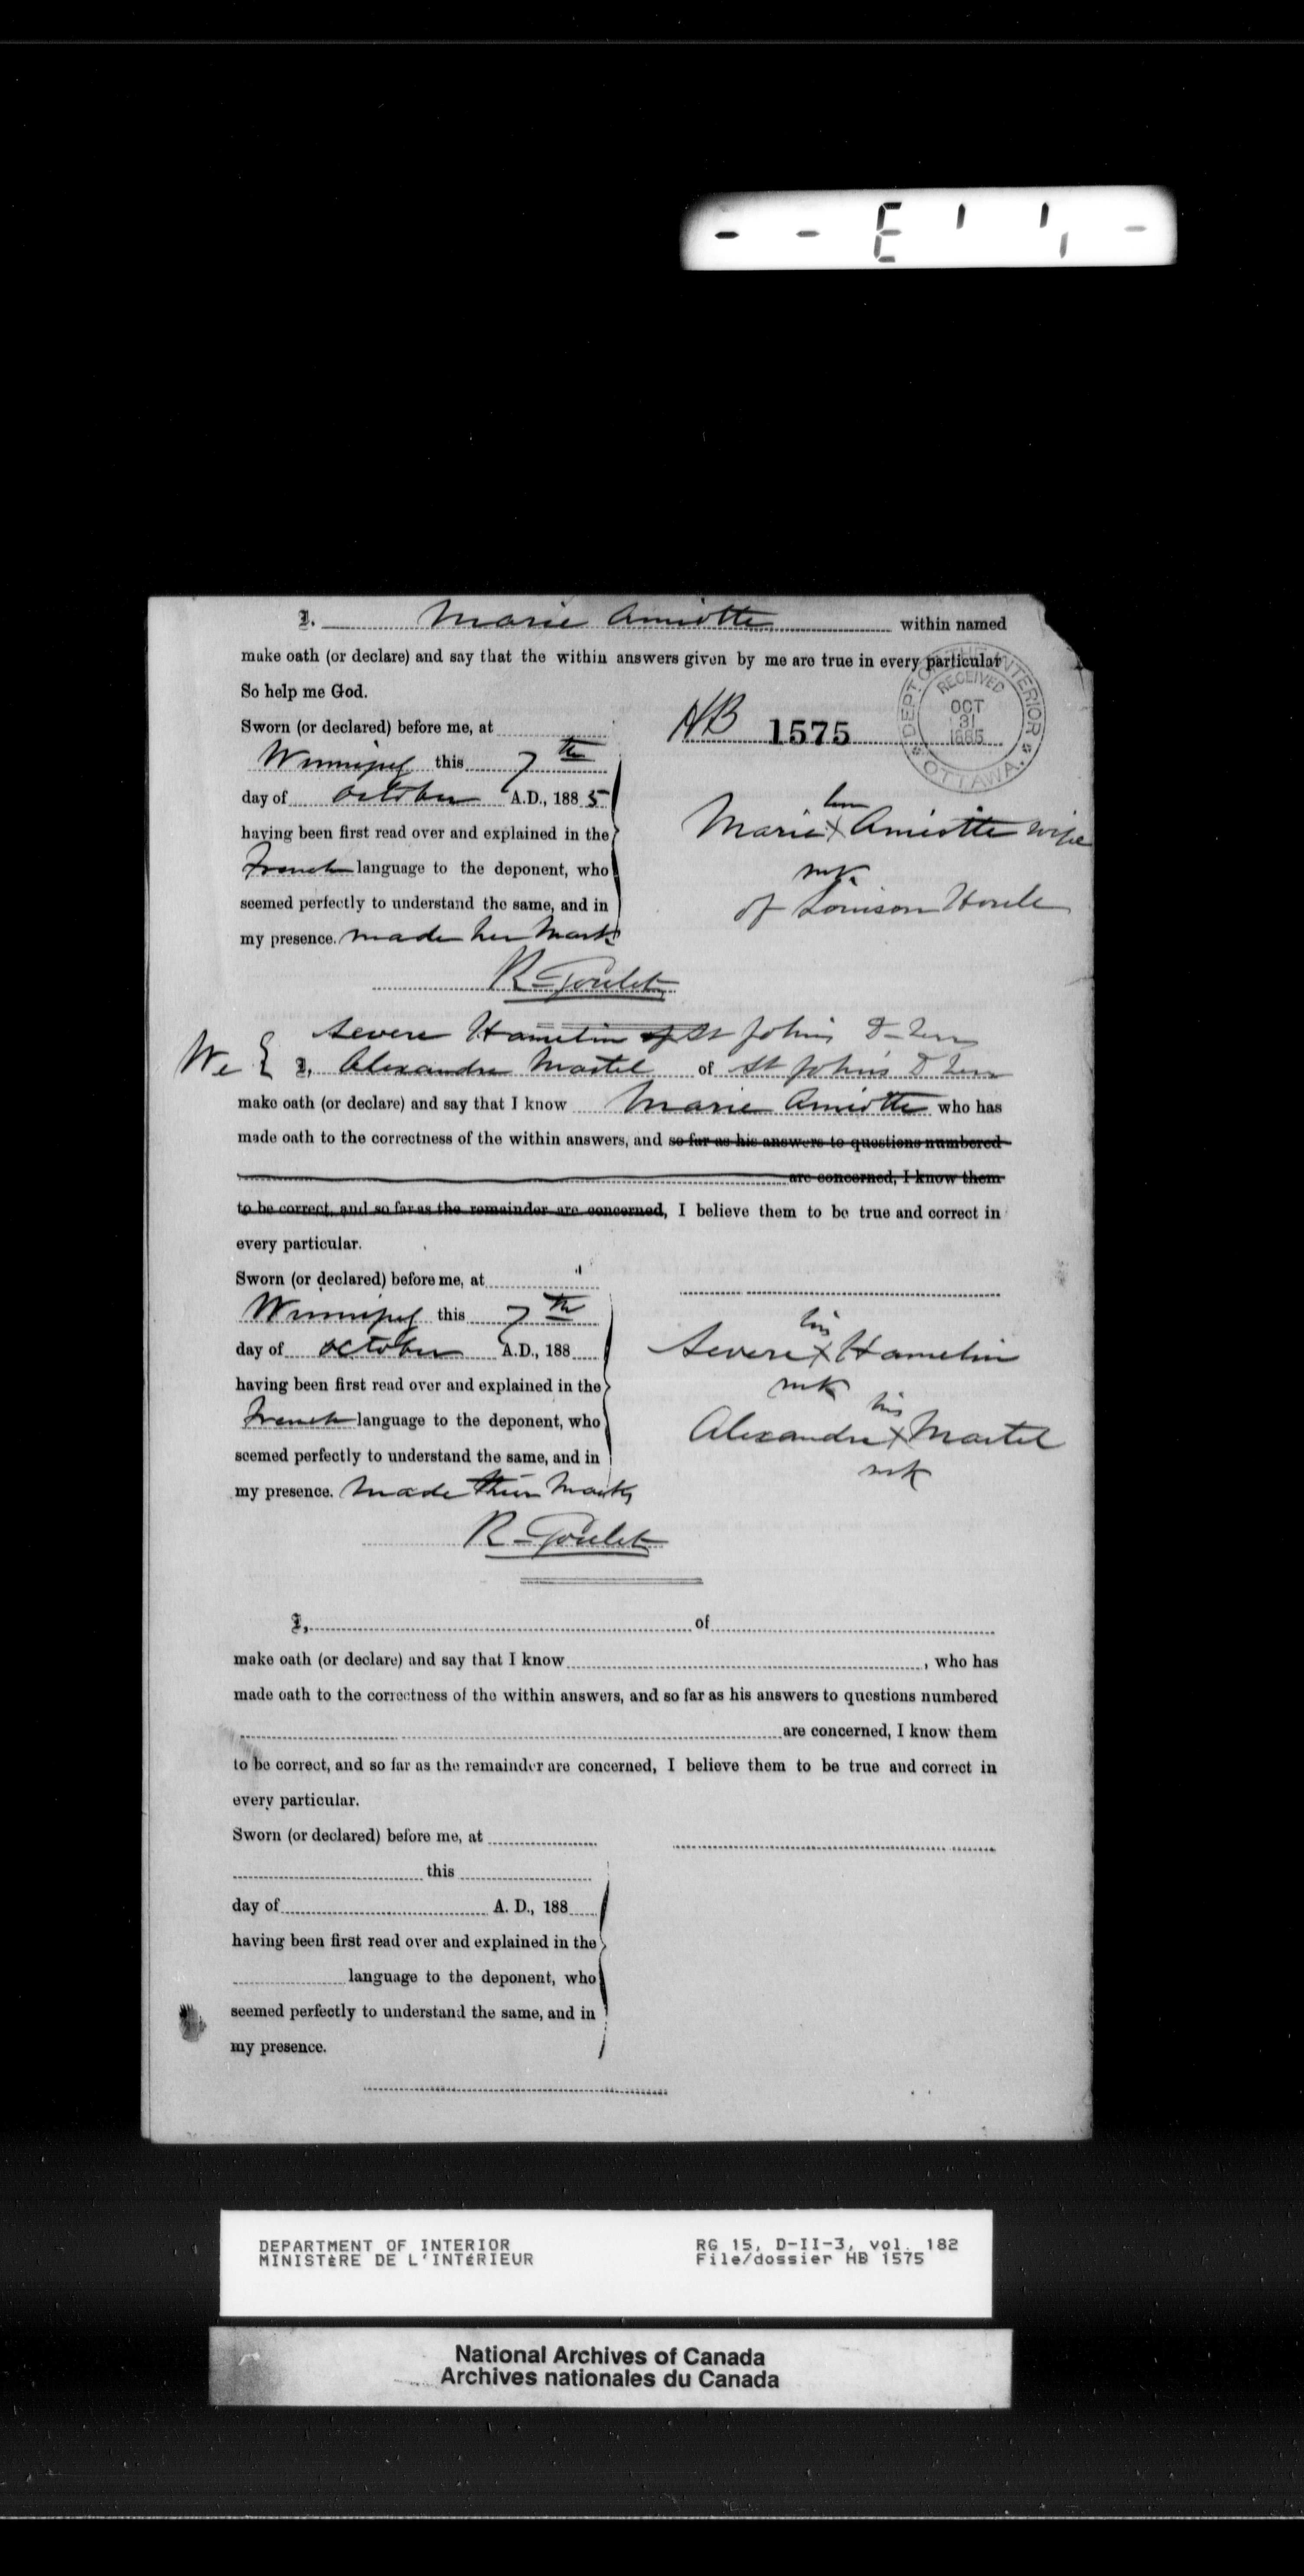 I, Marie Amiotte within named
make oath (or declare) and say that the within answers given by me are true in every particular
So help me God.
DEPT. OF THE INTERIOR
RECEIVED
OCT
31
1885
OTTAWA.
Sworn (or declared) before me, at
HB 1575
Winnipeg this 7th
day of October A.D., 1885
her
Marie X Amiotte wife
mk
of Louison Houle
having been first read over and explained in the
French language to the deponent, who
seemed perfectly to understand the same, and in
my presence. made her mark
R Goulet
Severe Hamelin of St Johns D Terr
We { I, Alexandre Martel of St John's D Terr
make oath (or declare) and say that I know Marie Amiotte who has
made oath to the correctness of the within answers, and so far as his answers to questions numbered
are concerned, I know them
to be correct, and so far as the remainder are concerned, I believe them to be true and correct in
every particular.
Sworn (or declared) before me, at
Winnipeg this 7th
day of October A.D., 188
his
Severe X Hamelin
mk
his
Alexandre X Martel
mk
having been first read over and explained in the
French language to the deponent, who
seemed perfectly to understand the same, and in
my presence. made their marks
R Goulet
I, of
make oath (or declare) and say that I know , who has
made oath to the correctness of the within answers, and so far as his answers to questions numbered
are concerned, I know them
to be correct, and so far as the remainder are concerned, I believe them to be true and correct in
every particular.
Sworn (or declared) before me, at
this
day of A. D., 188
having been first read over and explained in the
language to the deponent, who
seemed perfectly to understand the same, and in
my presence.
DEPARTMENT OF INTERIOR
MINISTÈRE DE L'INTÉRIEUR
RG 15, D-II-3, vol. 182
File/dossier HB 1575
National Archives of Canada
Archives nationales du Canada